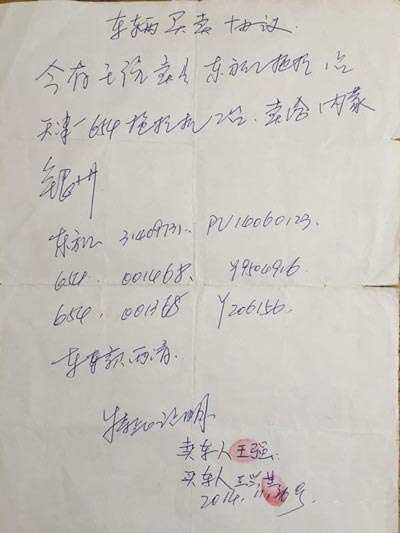 车辆买卖协议
今有王强卖东方红拖拉机1台
天津-654拖拉机2台.卖给内蒙
东方红 31409731. PU14060123.
654. 001468. Y9504916.
654. 001365 Y206156.
车其款两清.
特此证明
卖车人 王强.
买车人
2014.11.30号.